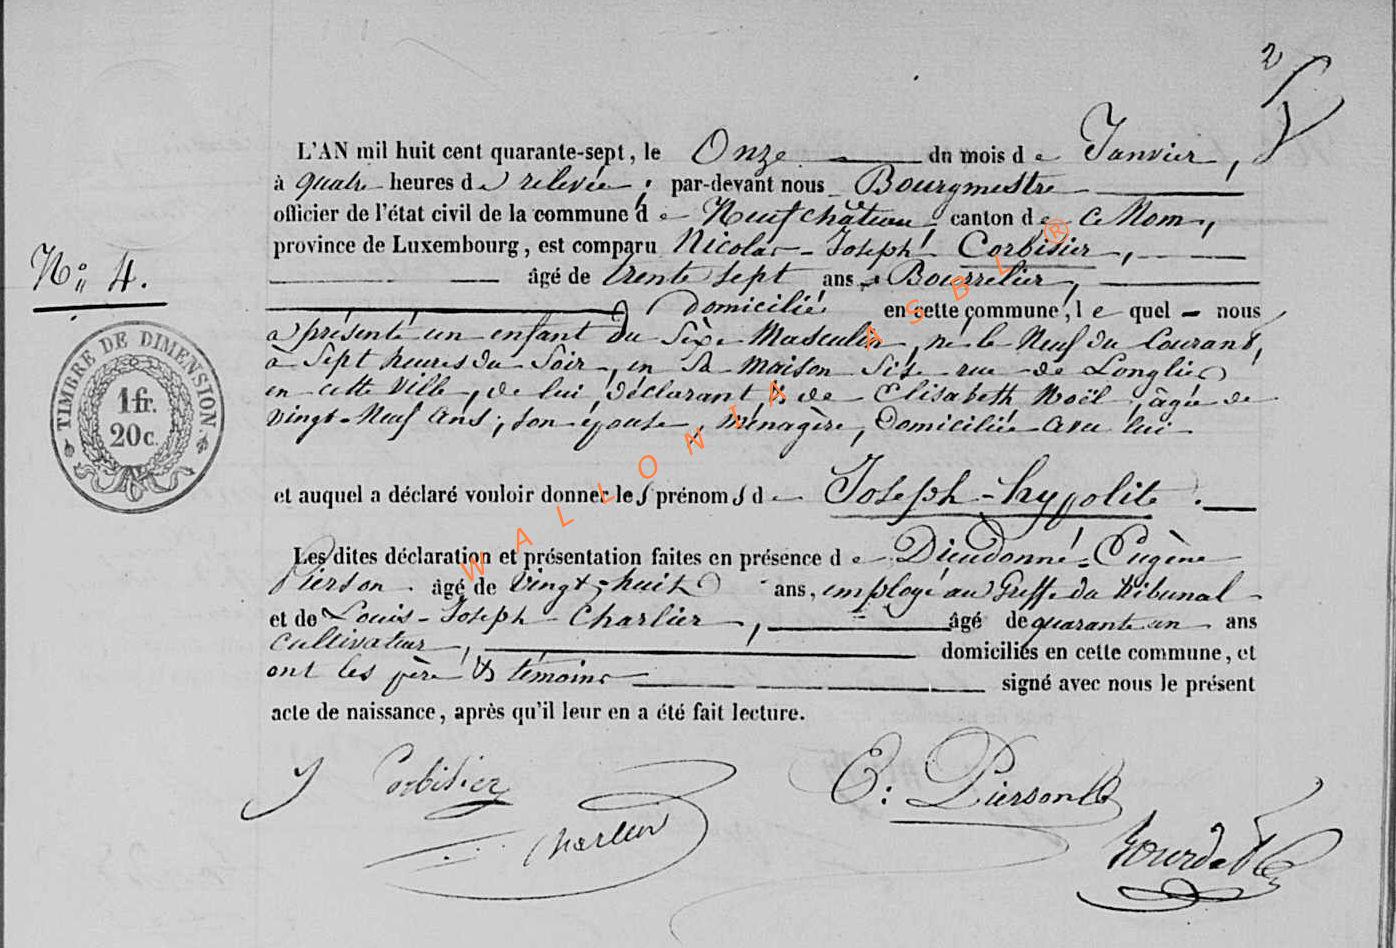 2
L'AN mil huit cent quarante-sept, le Onze du mois de Janvier,
à quatre heures de relevée, par-devant nous Bourgmestre
officier de l'état civil de la commune de Neufchâteau canton de ce Nom,
province de Luxembourg, est comparu Nicolas-Joseph Corbisier,
N° 4.
âgé de trente sept ans, Bourrelier,
Domicilié en cette commune, lequel nous
a présenté un enfant du Sèxe Masculin, né le Neuf du Courant,
à Sept heures du Soir, en sa maison sise rue de Longlier
en cette ville, de lui déclarant & de Elisabeth Noël, âgée de
vingt-Neuf ans, son épouse, ménagère, Domiciliée avec lui
et auquel a déclaré vouloir donner les prénoms de Joseph-hypolite.
Les dites déclaration et présentation faites en présence de Dieudonné-Eugène
Pierson âgé de vingt-huit ans, employé au Greffe du tribunal
et de Louis-Joseph Charlier, âgé de quarante un ans
cultivateur, domiciliés en cette commune, et
ont les père & témoins signé avec nous le présent
acte de naissance, après qu'il leur en a été fait lecture.
TIMBRE DE DIMENSION
1 fr.
20 c.
J Corbisier
E: Pierson
Charlier
WALLONIA ASBL ®